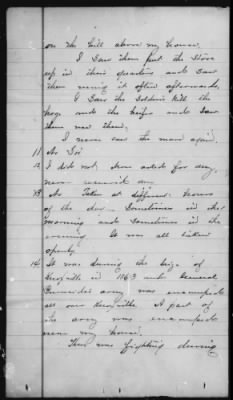 on the hill above my house.
I saw them put the stove
up in their quarters and saw
them using it often afterwards.
I saw the soldiers kill the
hogs and the heifer and saw
them use them.
I never saw the mare again.
11 No Sir
12 I did not
13 No Taken at different hours
of the day. Sometimes in the
morning and sometimes in the
evening. It was all taken
openly.
14 It was during the seige of
Knoxville in 1863 and General
Burnside's army was encamped
all over Knoxville. A part of
the army was encamped
near my house.
There was fighting during